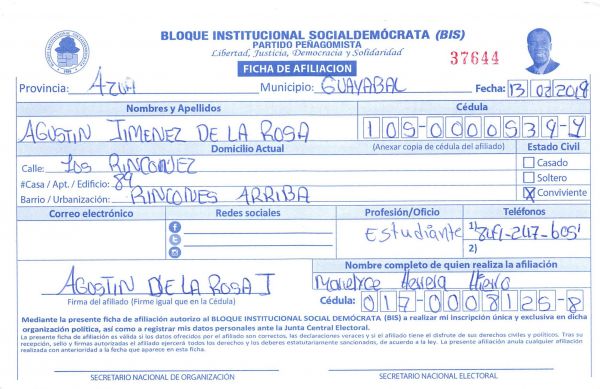 BLOQUE INSTITUCIONAL SOCIALDEMÓCRATA (BIS)
PARTIDO PEÑAGOMISTA
Libertad, Justicia, Democracia y Solidaridad
37644
FICHA DE AFILIACION
Provincia: AZUA Municipio: GUAYABAL Fecha: 13/02/2019
Nombres y Apellidos Cédula
AGUSTIN JIMENEZ DE LA ROSA 105-0000539-4
Domicilio Actual (Anexar copia de cédula del afiliado) Estado Civil
Calle: LOS RINCONEZ Casado
#Casa / Apt. / Edificio: 89 Soltero
Barrio / Urbanización: RINCONES ARRIBA X Conviviente
Correo electrónico Redes sociales Profesión/Oficio Teléfonos
Estudiante 1) 849-247-605
2)
AGOSTIN DE LA ROSA J
Firma del afiliado (Firme igual que en la Cédula)
Nombre completo de quien realiza la afiliación
Herrera
Cédula: 017-0008125-8
Mediante la presente ficha de afiliación autorizo al BLOQUE INSTITUCIONAL SOCIAL DEMÓCRATA (BIS) a realizar mi inscripción única y exclusiva en dicha
organización política, así como a registrar mis datos personales ante la Junta Central Electoral.
La presente ficha de afiliación es válida si los datos ofrecidos por el afiliado son correctos, las declaraciones veraces y si el afiliado tiene el disfrute de sus derechos civiles y políticos. Tras su
recepción, sello y firmas autorizadas el afiliado ejercerá todos los derechos y los deberes estatutariamente sancionados, de acuerdo a la ley. La presente afiliación anula cualquier afiliación
realizada con anterioridad a la fecha que aparece en esta ficha.
SECRETARIO NACIONAL DE ORGANIZACIÓN SECRETARIO NACIONAL ELECTORAL